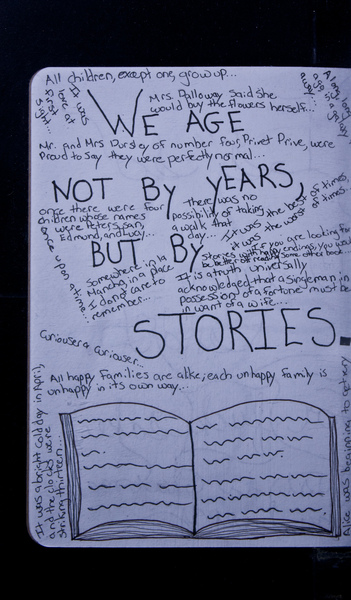 All children, except one, grow up...
It was
love at
first
sight...
Mrs. Dalloway said she
would buy the flowers herself...
A long
ago
away...
WE AGE
Mr. and Mrs Dursley of number four, Privet Drive, were
Proud to Say they were perfectly normal...
NOT BY YEARS,
once there were four
children whose names
were Peter, Susan,
Edmund, and Lucy...
there was no
possibility of taking
a walk that
day...
It was the best of times,
it was the worst of times...
once upon a
time...
BUT BY
If you are looking for
stories with happy endings, you would
be better off reading some other book...
Somewhere in la
Mancha in a place
I don't care to
remember...
It is a truth universally
acknowledged, that a single man in
possession of a fortune must be
in want of a wife...
STORIES
Curiouser & Curiouser...
All happy Families are alike; each unhappy family is
unhappy in its own way...
It was a bright cold day in April,
and the clocks were
striking thirteen...
Alice was beginning to get very